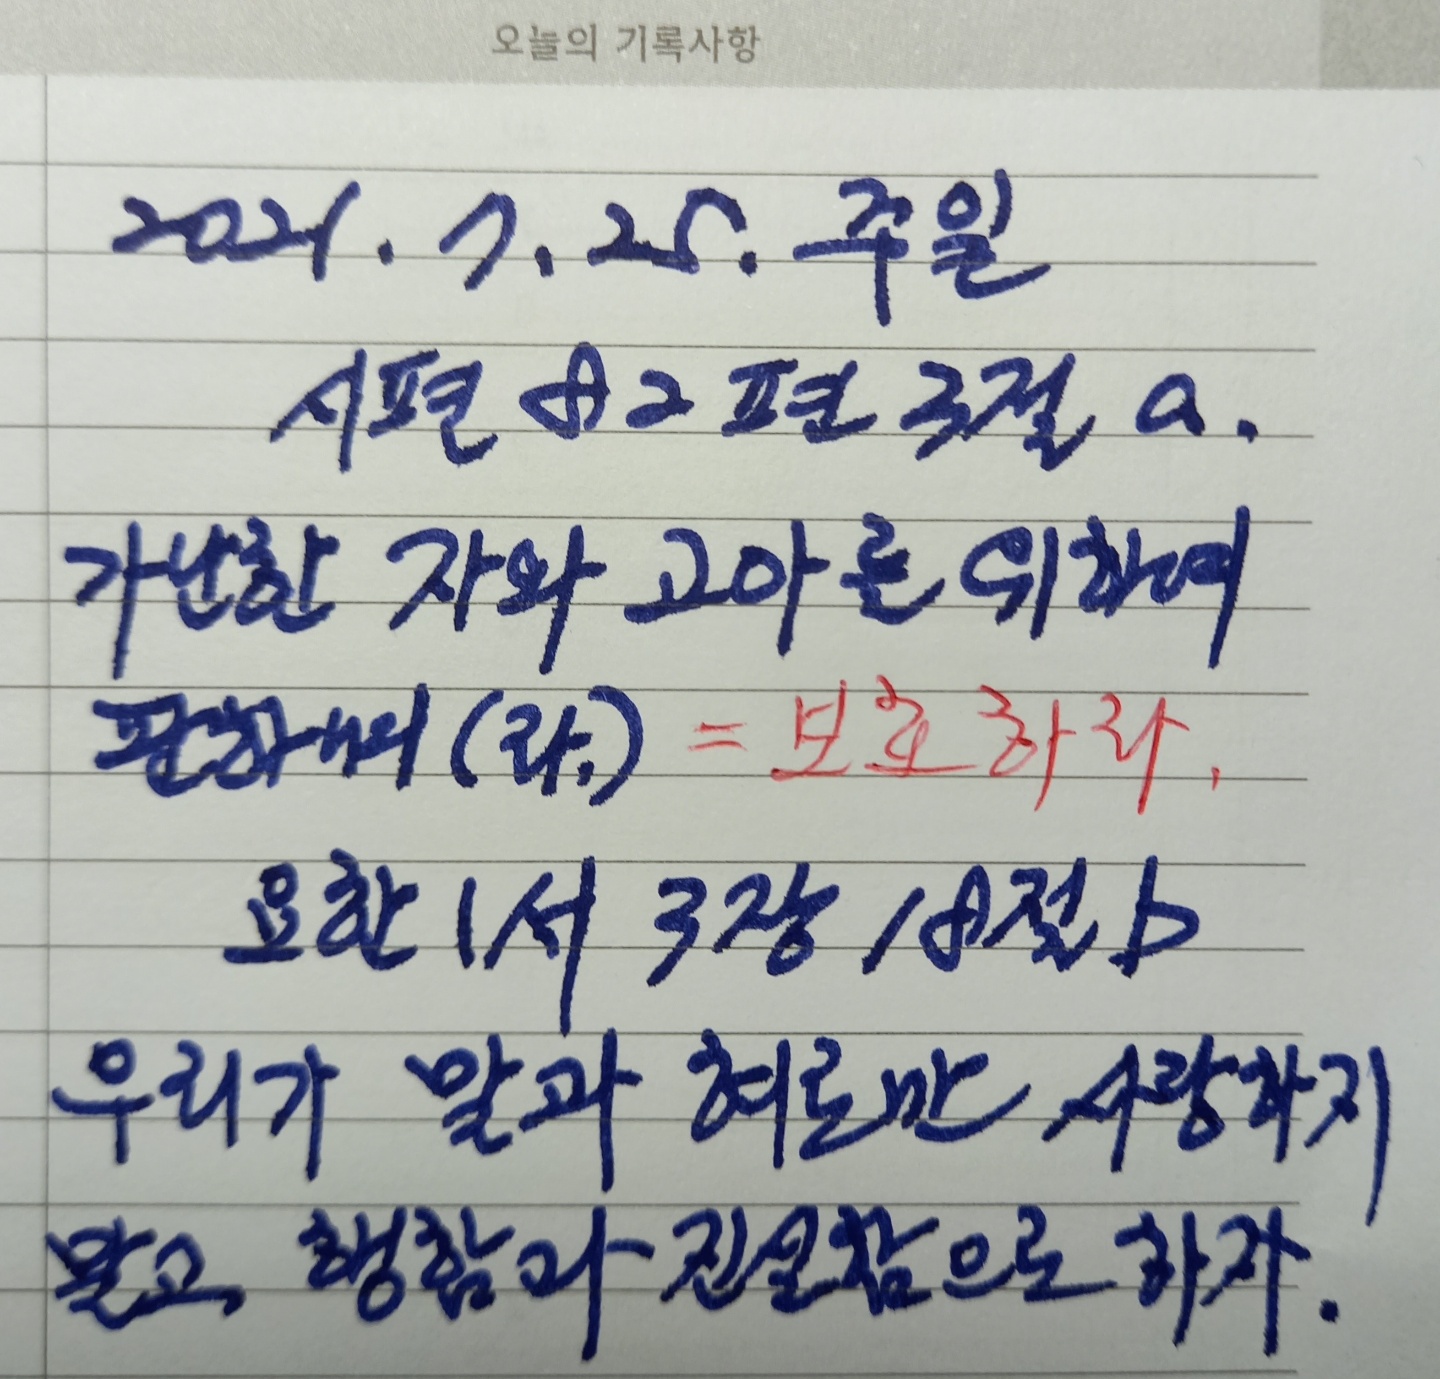 오늘의 기록사항
2021. 7. 25. 주일
시편 82편 3절 a.
가난한 자와 고아를 위하여
판단하며 (라.) = 보호하라.
요한1서 3장 18절 b
우리가 말과 혀로만 사랑하지
말고, 행함과 진실함으로 하자.